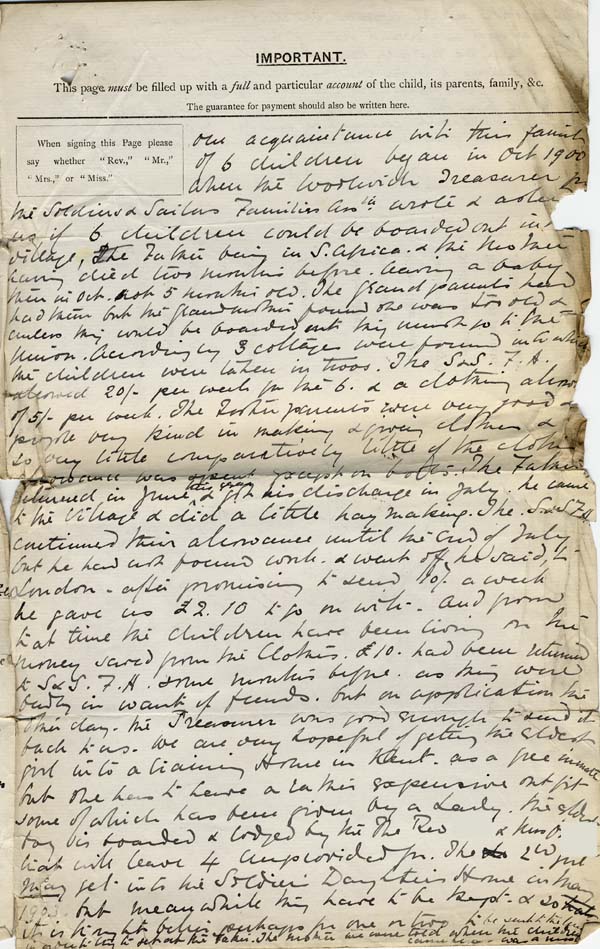 IMPORTANT.
This page must be filled up with a full and particular account of the child, its parents, family, &c.
The guarantee for payment should also be written here.
When signing this Page please
say whether "Rev.," "Mr.,"
"Mrs.," or "Miss."
our acquaintance with this family
of 6 children began in Oct 1900
when the Woolwich Treasurer
the Soldiers & Sailors Families Assth wrote & asked
us if 6 children could be boarded out in
village, The Father being in S. Africa. & the Mother
having died two months before. leaving a baby
then in Oct. not 5 months old. The grand parents
had them but the grandmother found she was too old &
unless they could be boarded out they must go to the
Union. Accordingly 3 cottages were found into which
the children were taken in twos. The S&S. F. A.
allowed 20/- per week for the 6. & a clothing allow
of 5/- per week. The Foster parents were very good &
people very kind in making & giving clothes &
so very little comparatively little of the clothing
allowance was spent except on boots. The Father
returned in June this year & got his discharge in July. he came
to the village & did a little hay making. The S&S F A
continued their allowance until the end of July
but he had not found work. & went off he said, to
London - after promising to send 10/- a week
he gave us £2.10 to go on with. And from
that time the children have been living on the
money saved from the Clothes. £10. had been returned
to S&S. F. A. some months before. as they were
badly in want of funds. but on application the
other day. the Treasurer was good enough to send it
back to us. We are very hopeful of getting the eldest
girl into a training Home in Kent. as a free inmate
but one has to have a rather expensive outfit
some of which has been given by a Lady. the eldest
boy is boarded & lodged by the The Rev & Mrs
that will leave 4 unprovided for. The 2nd girl
may get into the Soldiers Daughters Home in May
but meanwhile they have to be kept. & so
it is thought better perhaps for one or two to be sent to the
the Father. The mother when the children